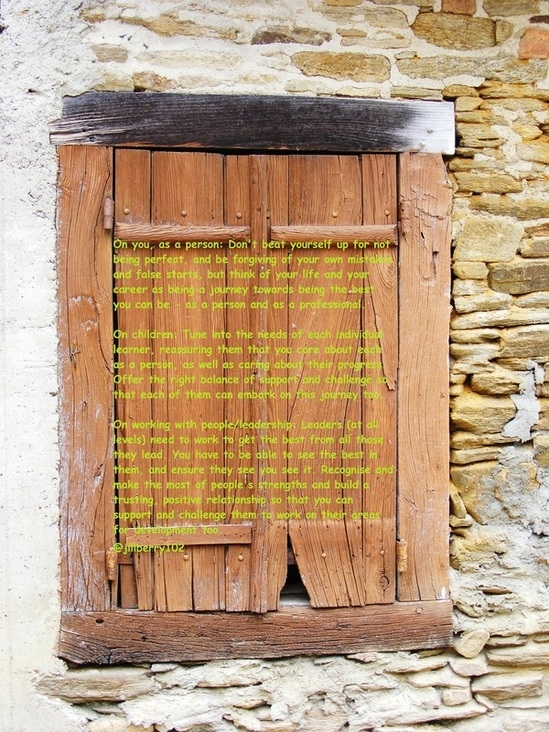 On you, as a person: Don't beat yourself up for not
being perfect, and be forgiving of your own mistakes
and false starts, but think of your life and your
career as being a journey towards being the best
you can be - as a person and as a professional.
On children: Tune into the needs of each individual
learner, reassuring them that you care about each
as a person, as well as caring about their progress.
Offer the right balance of support and challenge so
that each of them can embark on this journey too.
On working with people/leadership: Leaders (at all
levels) need to work to get the best from all those
they lead. You have to be able to see the best in
them, and ensure they see you see it. Recognise and
make the most of people's strengths and build a
trusting, positive relationship so that you can
support and challenge them to work on their areas
for development too.
@jillberry102